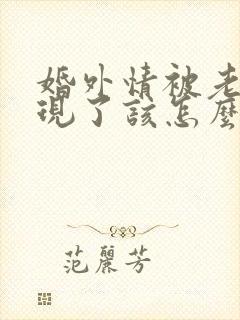 婚外情被老
現了該怎麼
范麗芳